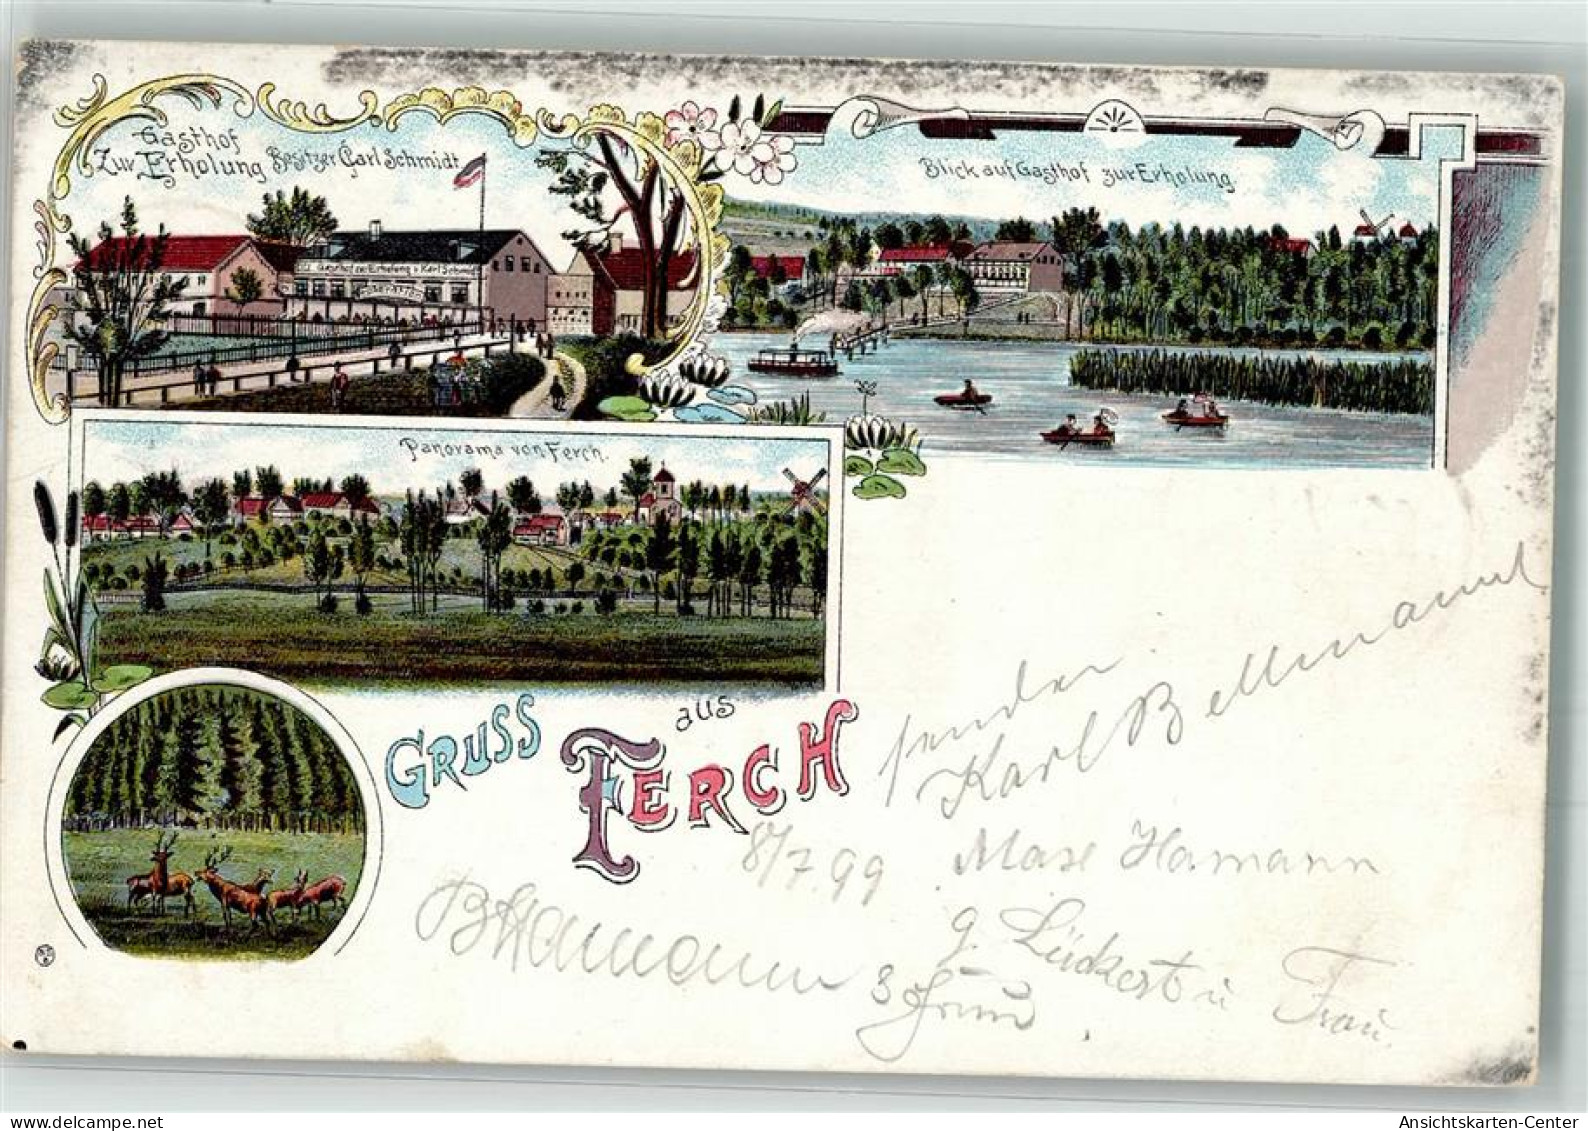 Gasthof
Zur Erholung Besitzer Carl Schmidt
Gasthof zur Erholung v. Karl Schmidt
Blick auf Gasthof zur Erholung.
Panorama von Ferch.
GRUSS aus FERCH
8/7.99
Karl Bellmann
Max Hamann
g. Lückert u Frau
Ansichtskarten-Center